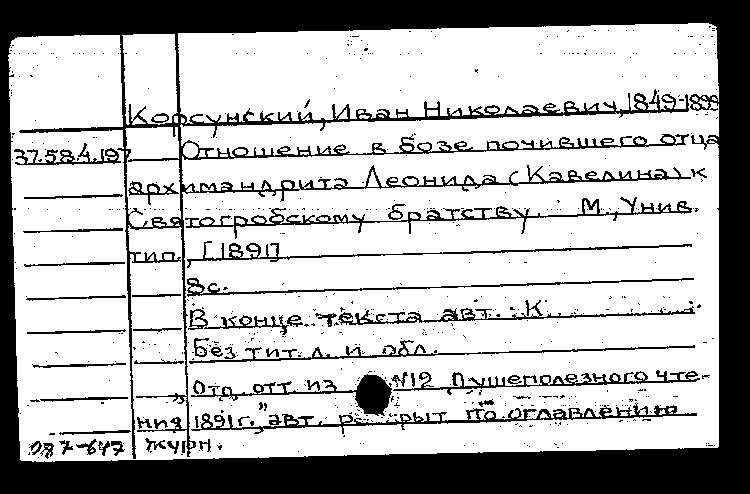 Корсунский, Иван Николаевич, 1849-1899
37.584.197 Отношение в бозе почившего отца
архимандрита Леонида (Кавелина) к
Святогробскому братству. М., Унив.
тип., [1891]
8с.
В конце текста авт.: К.
Без тит. л. и обл.
Отд. отт. из №12 „Душеполезного чте-
ния 1891г.", авт. раскрыт по оглавлению
087-647 журн.